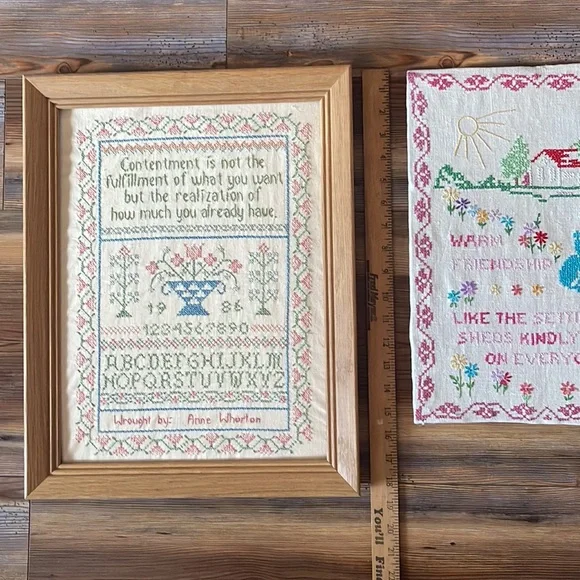 Contentment is not the
fulfillment of what you want
but the realization of
how much you already have.
1986
1234567890
ABCDEFGHIJKLM
NOPQRSTUVWXYZ
Wrought by: Anne Wharton
WARM
FRIENDSHIP
LIKE THE SETTI
SHEDS KINDLY
ON EVERYO
You'll Fin